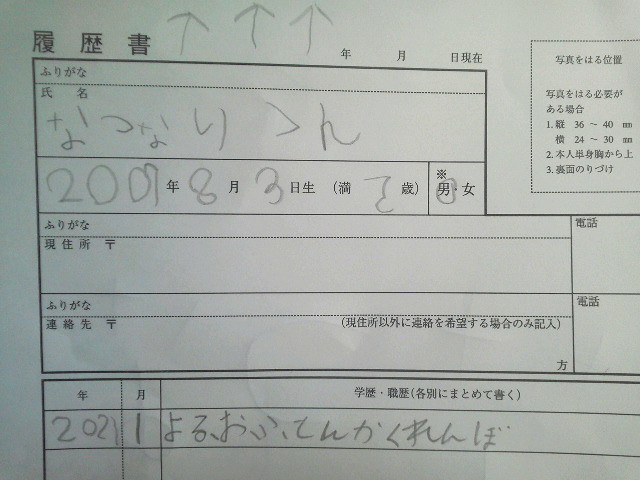 履歴書 ↑ ↑ ↑
年 月 日現在
写真をはる位置
写真をはる必要が
ある場合
1.縦 36 ～ 40 ㎜
横 24 ～ 30 ㎜
2.本人単身胸から上
3.裏面のりづけ
ふりがな
氏 名
なつなり
年 8 月 3 日生 (満 歳) ※ 男・女
ふりがな 電話
現住所 〒
ふりがな 電話
連絡先 〒 (現住所以外に連絡を希望する場合のみ記入)
方
年 月 学歴・職歴(各別にまとめて書く)
2021 1 よる、おふ、てんかくれんぼ